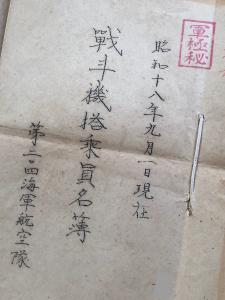 軍極秘
昭和十八年九月一日現在
戰斗機搭乘員名簿
第二〇四海軍航空隊